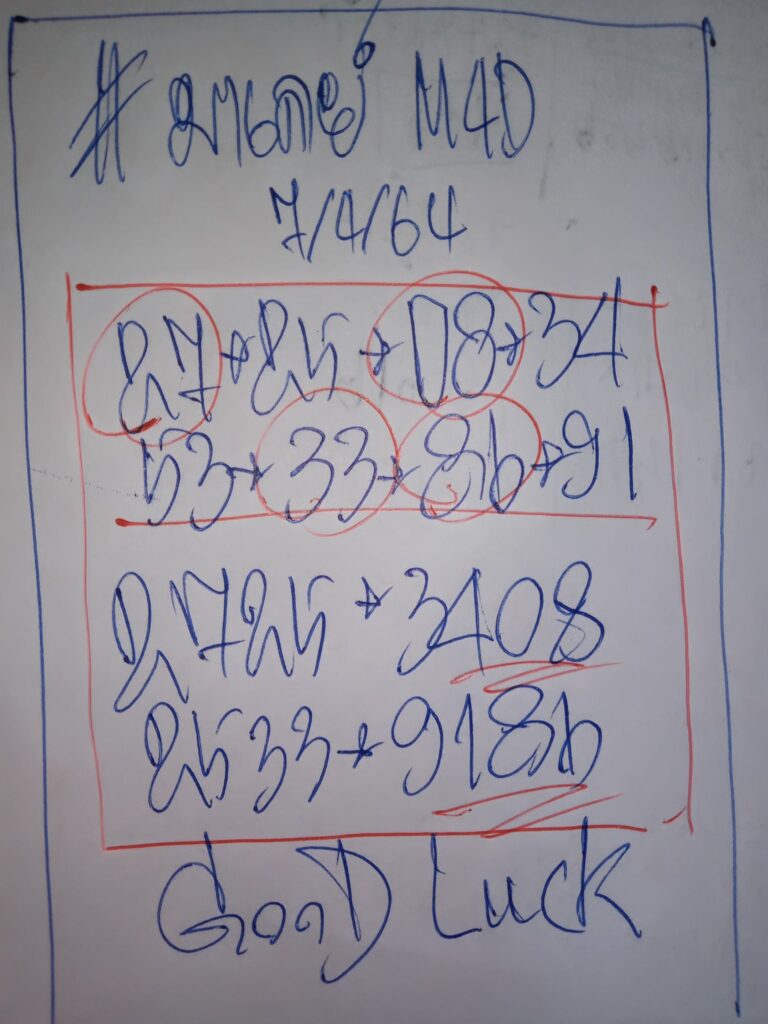 #มาเลย์ M4D
7/4/64
27+25+08+34
53+33+86+91
2725+3408
2533+9186
GooD Luck